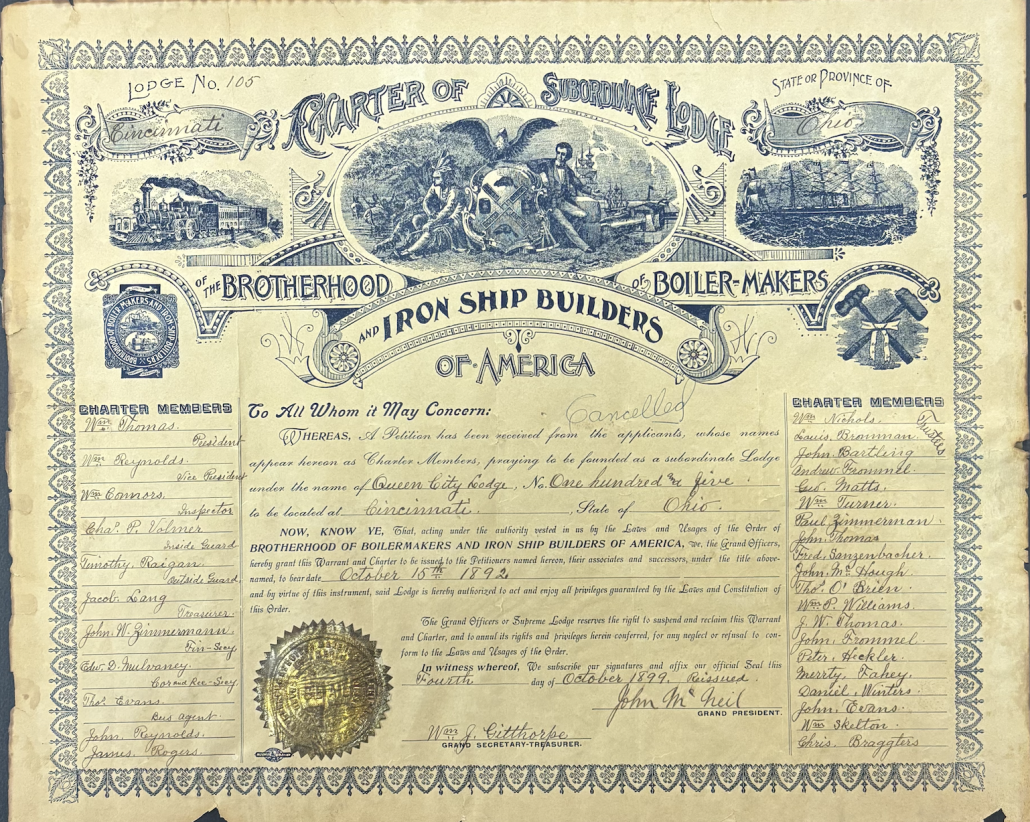 LODGE No. 105
CHARTER OF SUBORDINATE LODGE
STATE OR PROVINCE OF
Cincinnati
Ohio
OF THE BROTHERHOOD OF BOILER-MAKERS
AND IRON SHIP BUILDERS
OF AMERICA
CHARTER MEMBERS
Wm. Thomas.
President
Wm Reynolds.
Vice President
Wm Connors.
Inspector
Chas. P. Volmer
Inside Guard
Timothy Raigan
Outside Guard
Jacob Lang
Treasurer.
John W. Zimmermann
Fin-Secy
Edw. D. Mulvaney
Cor and Rec-Secy
Thos Evans.
Bus agent.
John Reynolds.
James Rogers.
To All Whom it May Concern:
Cancelled
WHEREAS, A Petition has been received from the applicants, whose names
appear hereon as Charter Members, praying to be founded as a subordinate Lodge
under the name of Queen City Lodge, No. One hundred & five
to be located at Cincinnati. , State of Ohio.
NOW, KNOW YE, That, acting under the authority vested in us by the Laws and Usages of the Order of
BROTHERHOOD OF BOILERMAKERS AND IRON SHIP BUILDERS OF AMERICA, we, the Grand Officers,
hereby grant this Warrant and Charter to be issued to the Petitioners named hereon, their associates and successors, under the title above-
named, to bear date October 15th 1892
and by virtue of this instrument, said Lodge is hereby authorized to act and enjoy all privileges guaranteed by the Laws and Constitution of
this Order.
The Grand Officers or Supreme Lodge reserves the right to suspend and reclaim this Warrant
and Charter, and to annul its rights and privileges herein conferred, for any neglect or refusal to con-
form to the Laws and Usages of the Order.
In witness whereof, We subscribe our signatures and affix our official Seal this
Fourth day of October 1899. Reissued.
John McNeil
GRAND PRESIDENT.
Wm J. Gilthorpe
GRAND SECRETARY-TREASURER.
CHARTER MEMBERS
Wm Nichols.
Louis Bronman
John Bartling
Trustees
Andrew Frommel.
Geo. Matts.
Wm Turner.
Paul Zimmerman.
John Thomas
Fred. Ganzenbacher.
John McHough
Thos. O'Brien.
Wm P. Williams.
J. W. Thomas.
John, Frommel.
Peter, Heckler.
Merrty, Fahey.
Daniel, Winters.
John, Evans.
Wm Skelton.
Chris. Braggters